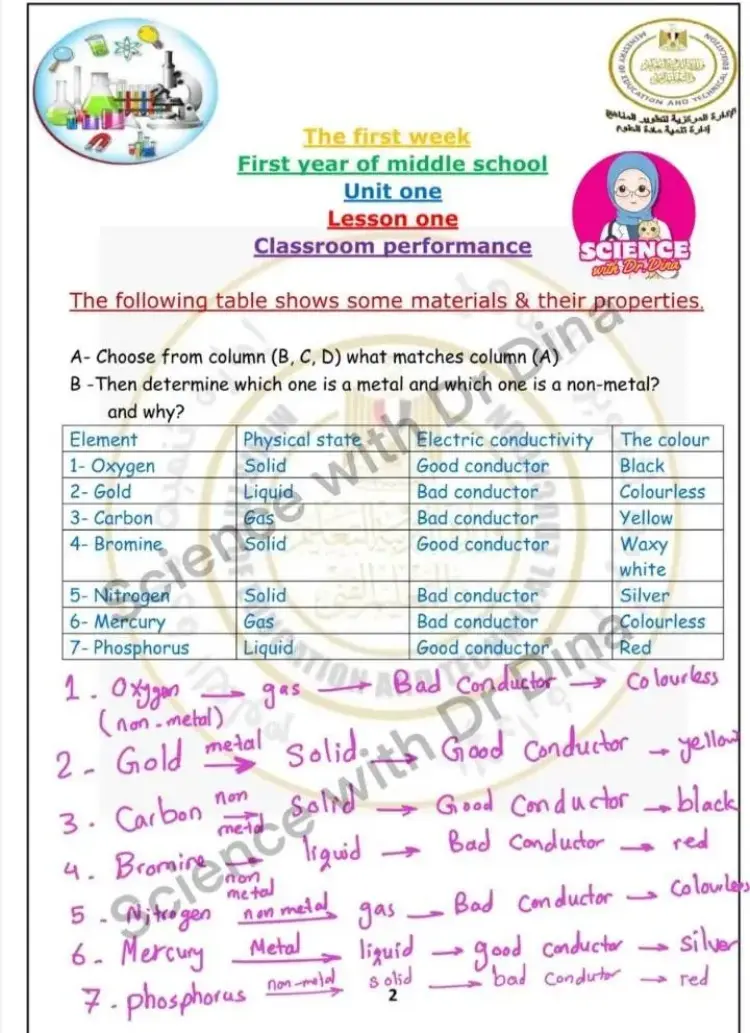 MINISTRY OF EDUCATION AND TECHNICAL EDUCATION
الإدارة المركزية لتطوير المناهج
إدارة تنمية مادة العلوم
The first week
First year of middle school
Unit one
Lesson one
Classroom performance
SCIENCE
with Dr.Dina
The following table shows some materials & their properties.
A- Choose from column (B, C, D) what matches column (A)
B -Then determine which one is a metal and which one is a non-metal?
and why?
Element Physical state Electric conductivity The colour
1- Oxygen Solid Good conductor Black
2- Gold Liquid Bad conductor Colourless
3- Carbon Gas Bad conductor Yellow
4- Bromine Solid Good conductor Waxy
white
5- Nitrogen Solid Bad conductor Silver
6- Mercury Gas Bad conductor Colourless
7- Phosphorus Liquid Good conductor Red
Science with Dr Dina
1. Oxygen → gas → Bad Conductor → Colourless
(non-metal)
2- Gold metal → Solid → Good Conductor → yellow
3. Carbon non metal → Solid → Good Conductor → black
4. Bromine → liquid → Bad Conductor → red
non metal
5- Nitrogen non metal → gas → Bad Conductor → Colourless
6- Mercury Metal → liquid → good conductor → silver
7- phosphorus non-metal → solid → bad conductor → red
2
Science with Dr Dina